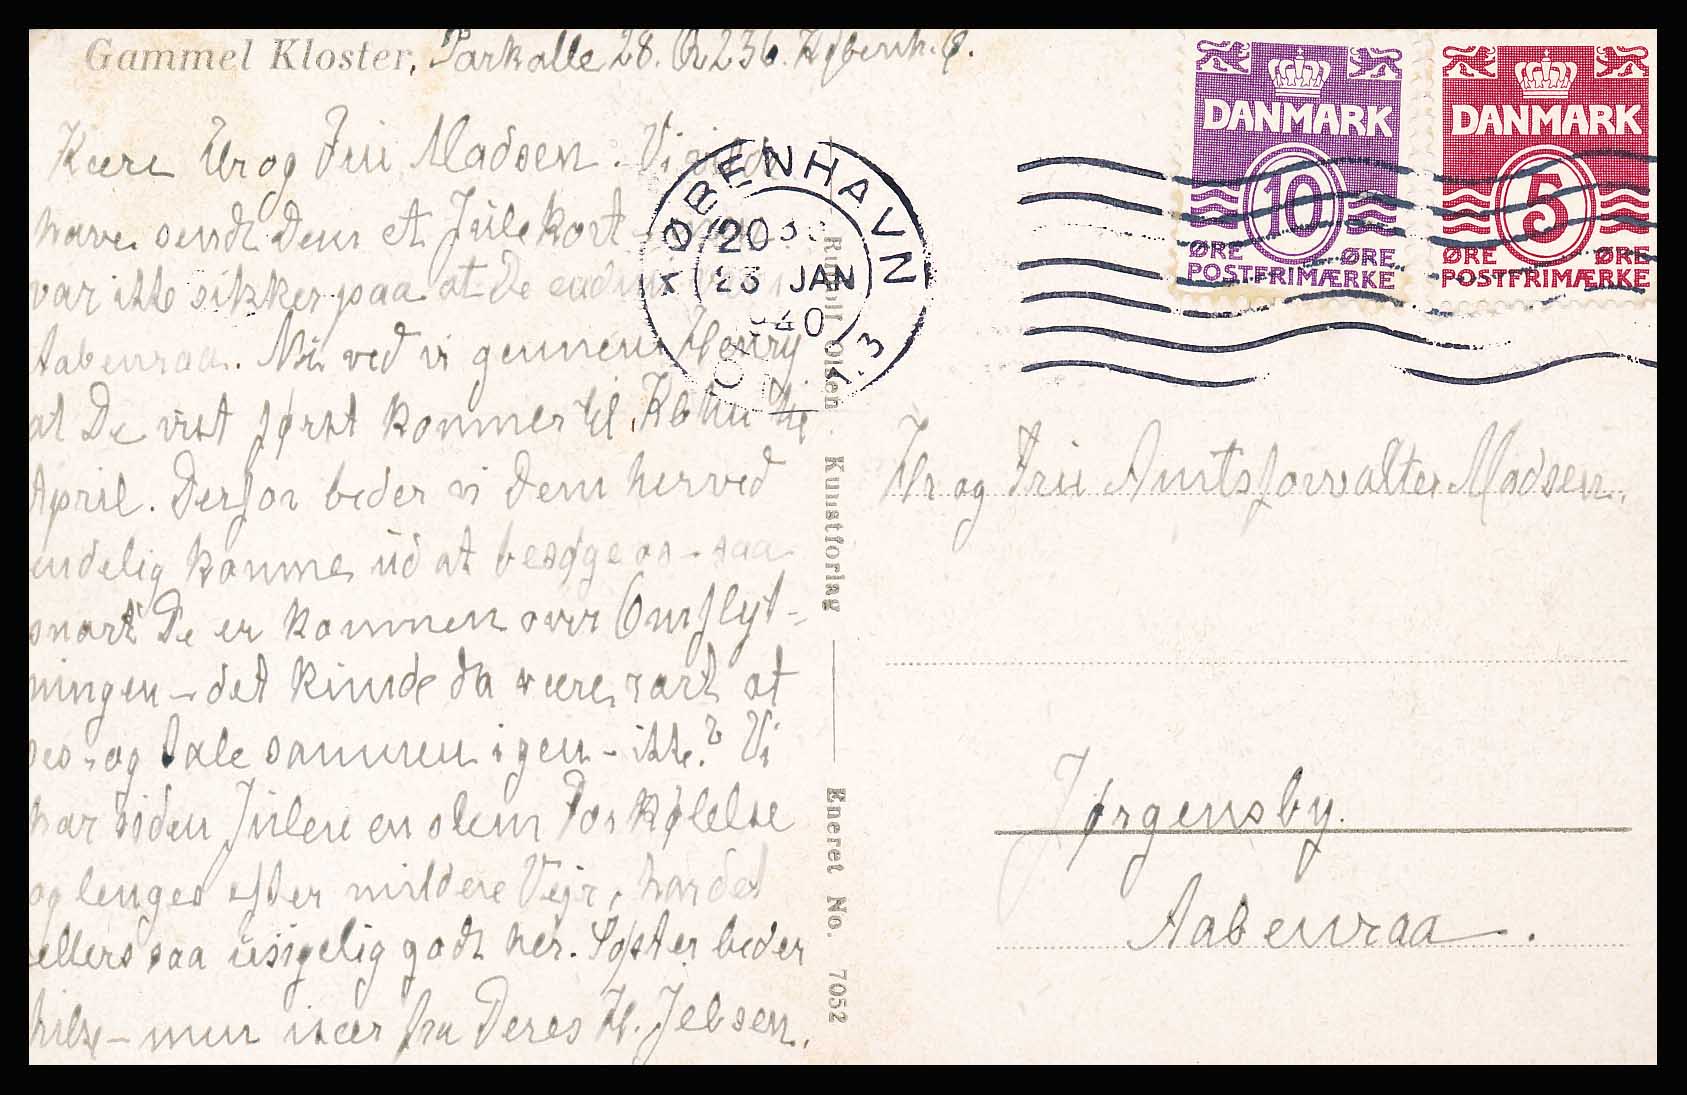 Gammel Kloster, Parkalle 28. Københ. Ø.
Kære Hr og Fru Madsen. Vi vilde
have sendt Dem et Julekort
var ikke sikker paa at De
Aabenraa. Nu ved vi gennem Henry
at De vist først kommer til Kbhvn
April. Derfor beder vi Dem herved
endelig komme ud at besøge os – saa
snart De er kommen over Omflyt-
ningen – det kunde da være rart at
ses og tale sammen igen – ikke? Vi
har siden Julen en slem Forkølelse
og længes efter mildere Vejr, har det
ellers saa usigelig godt her. Søster beder
hilse – mun især fra Deres H. Jebsen.
KØBENHAVN
20
23 JAN
1940
OMK. 13
DANMARK
10
ØRE ØRE
POSTFRIMÆRKE
DANMARK
5
ØRE ØRE
POSTFRIMÆRKE
Rudolf Olsen. Kunstforlag
Eneret No. 7052
Hr og Fru Amtsforvalter Madsen.
Jørgensby.
Aabenraa.